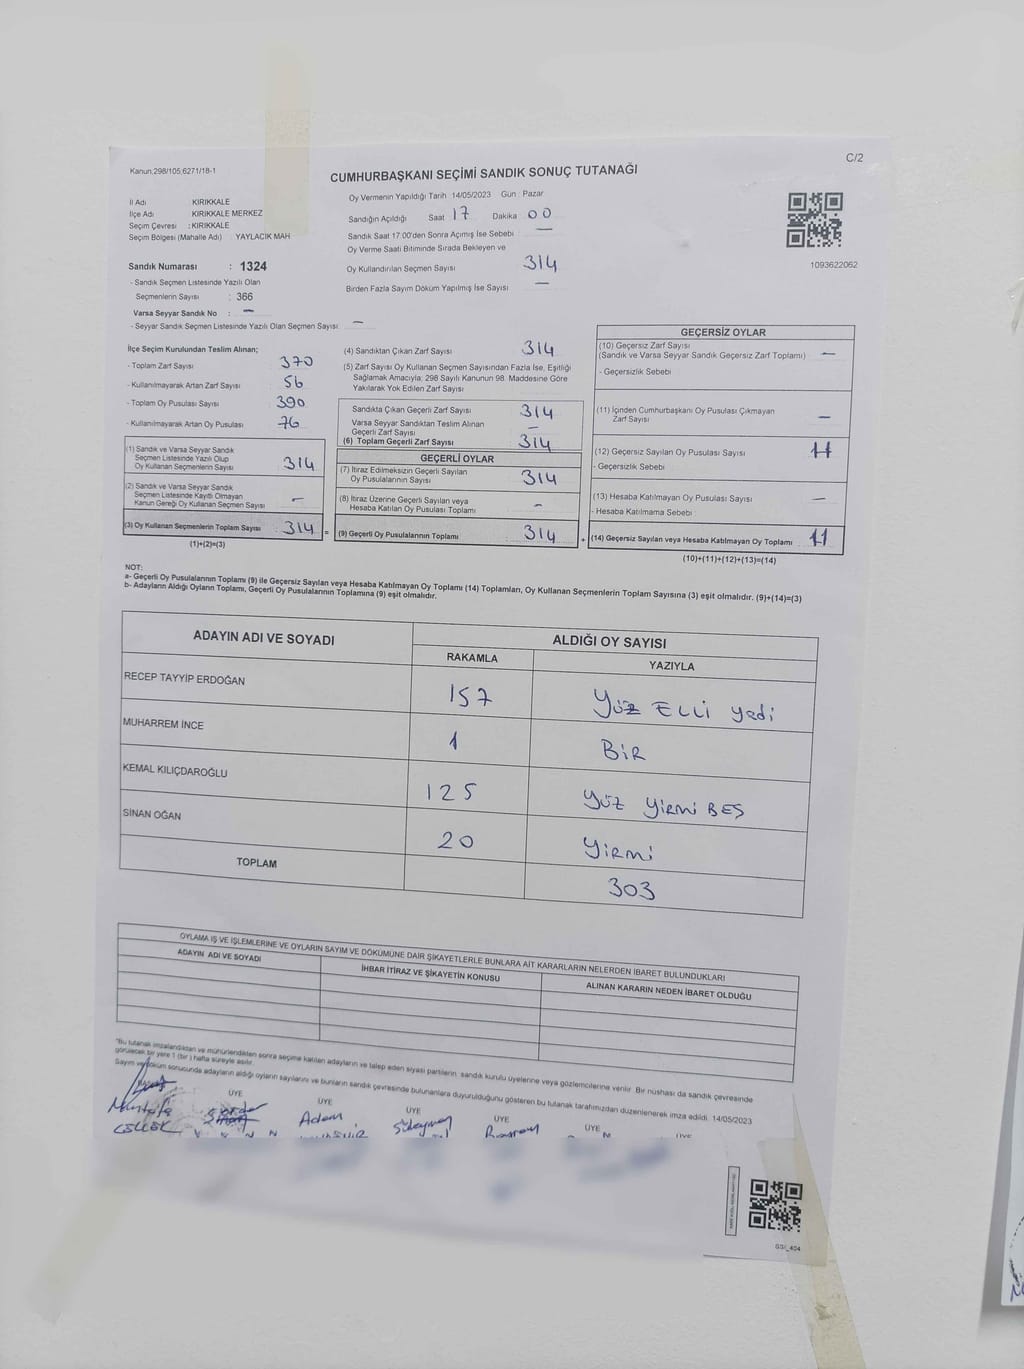 C/2
Kanun;298/105;6271/18-1
CUMHURBAŞKANI SEÇİMİ SANDIK SONUÇ TUTANAĞI
İl Adı KIRIKKALE
İlçe Adı KIRIKKALE MERKEZ
Seçim Çevresi : KIRIKKALE
Seçim Bölgesi (Mahalle Adı) : YAYLACIK MAH
Sandık Numarası : 1324
- Sandık Seçmen Listesinde Yazılı Olan
Seçmenlerin Sayısı : 366
Varsa Seyyar Sandık No : —
- Seyyar Sandık Seçmen Listesinde Yazılı Olan Seçmen Sayısı : —
Oy Vermenin Yapıldığı Tarih 14/05/2023 Gün : Pazar
Sandığın Açıldığı Saat 17 Dakika 00
Sandık Saat 17:00'den Sonra Açımış İse Sebebi : —
Oy Verme Saati Bitiminde Sırada Bekleyen ve
Oy Kullandırılan Seçmen Sayısı 314
Birden Fazla Sayım Döküm Yapılmış İse Sayısı —
1093622062
İlçe Seçim Kurulundan Teslim Alınan;
- Toplam Zarf Sayısı : 370
- Kullanılmayarak Artan Zarf Sayısı : 56
- Toplam Oy Pusulası Sayısı : 390
- Kullanılmayarak Artan Oy Pusulası : 76
(1) Sandık ve Varsa Seyyar Sandık
Seçmen Listesinde Yazılı Olup
Oy Kullanan Seçmenlerin Sayısı : 314
(2) Sandık ve Varsa Seyyar Sandık
Seçmen Listesinde Kayıtlı Olmayan
Kanun Gereği Oy Kullanan Seçmen Sayısı : —
(3) Oy Kullanan Seçmenlerin Toplam Sayısı : 314 =
(1)+(2)=(3)
(4) Sandıktan Çıkan Zarf Sayısı 314
(5) Zarf Sayısı Oy Kullanan Seçmen Sayısından Fazla İse, Eşitliği
Sağlamak Amacıyla; 298 Sayılı Kanunun 98. Maddesine Göre
Yakılarak Yok Edilen Zarf Sayısı
Sandıkta Çıkan Geçerli Zarf Sayısı : 314
Varsa Seyyar Sandıktan Teslim Alınan
Geçerli Zarf Sayısı —
(6) Toplam Geçerli Zarf Sayısı : 314
GEÇERLİ OYLAR
(7) İtiraz Edilmeksizin Geçerli Sayılan
Oy Pusulalarının Sayısı : 314
(8) İtiraz Üzerine Geçerli Sayılan veya
Hesaba Katılan Oy Pusulası Toplamı : —
(9) Geçerli Oy Pusulalarının Toplamı : 314 +
GEÇERSİZ OYLAR
(10) Geçersiz Zarf Sayısı
(Sandık ve Varsa Seyyar Sandık Geçersiz Zarf Toplamı) : —
- Geçersizlik Sebebi :
(11) İçinden Cumhurbaşkanı Oy Pusulası Çıkmayan
Zarf Sayısı : —
(12) Geçersiz Sayılan Oy Pusulası Sayısı : 11
- Geçersizlik Sebebi :
(13) Hesaba Katılmayan Oy Pusulası Sayısı : —
- Hesaba Katılmama Sebebi :
(14) Geçersiz Sayılan veya Hesaba Katılmayan Oy Toplamı : 11
(10)+(11)+(12)+(13)=(14)
NOT:
a- Geçerli Oy Pusulalarının Toplamı (9) ile Geçersiz Sayılan veya Hesaba Katılmayan Oy Toplamı (14) Toplamları, Oy Kullanan Seçmenlerin Toplam Sayısına (3) eşit olmalıdır. (9)+(14)=(3)
b- Adayların Aldığı Oyların Toplamı, Geçerli Oy Pusulalarının Toplamına (9) eşit olmalıdır.
ADAYIN ADI VE SOYADI ALDIĞI OY SAYISI
RAKAMLA YAZIYLA
RECEP TAYYİP ERDOĞAN 157 Yüz ELLİ yedi
MUHARREM İNCE 1 BİR
KEMAL KILIÇDAROĞLU 125 yüz yirmi BEŞ
SİNAN OĞAN 20 yirmi
TOPLAM 303
OYLAMA İŞ VE İŞLEMLERİNE VE OYLARIN SAYIM VE DÖKÜMÜNE DAİR ŞİKAYETLERLE BUNLARA AİT KARARLARIN NELERDEN İBARET BULUNDUKLARI
ADAYIN ADI VE SOYADI İHBAR İTİRAZ VE ŞİKAYETİN KONUSU ALINAN KARARIN NEDEN İBARET OLDUĞU
"Bu tutanak imzalandıktan ve mühürlendikten sonra seçime katılan adayların ve talep eden siyasi partilerin, sandık kurulu üyelerine veya gözlemcilerine verilir. Bir nüshası da sandık çevresinde
görülecek bir yere 1 (bir) hafta süreyle asılır.
Sayım ve döküm sonucunda adayların aldığı oyların sayılarını ve bunların sandık çevresinde bulunanlara duyurulduğunu gösteren bu tutanak tarafımızdan düzenlenerek imza edildi. 14/05/2023
ÜYE ÜYE ÜYE ÜYE ÜYE ÜYE
Mustafa Adem Süleyman